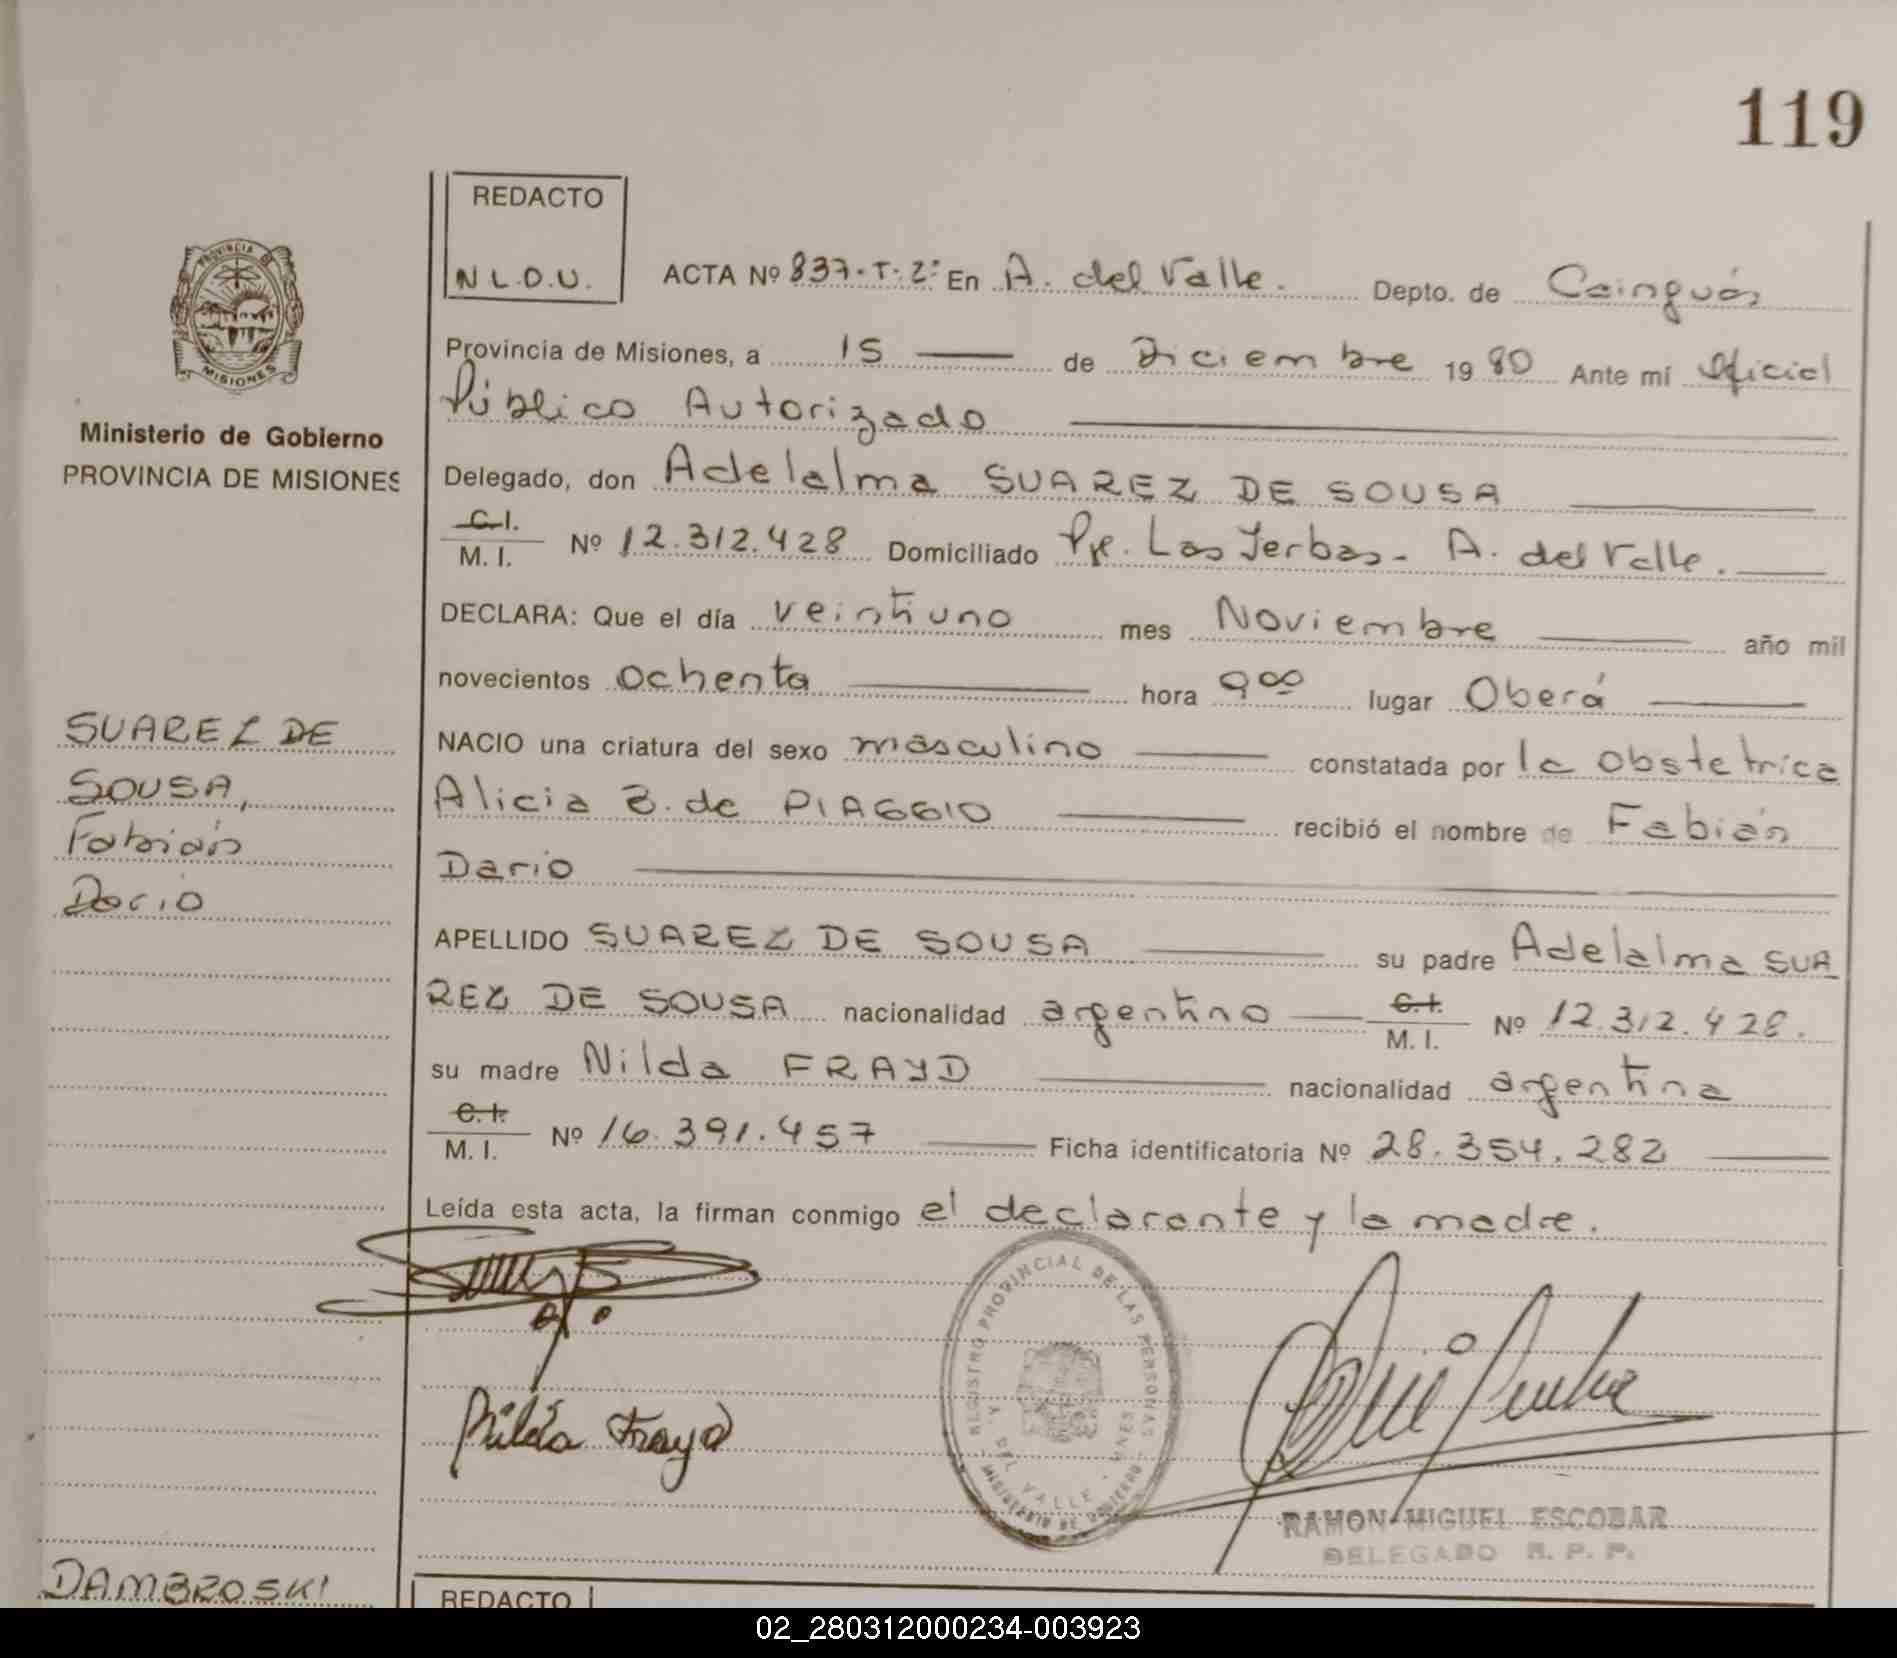 119
REDACTO
N L.D.U.
ACTA Nº 837-T-2º En A. del Valle. Depto. de Cainguás
PROVINCIA DE
MISIONES
Provincia de Misiones, a 15 de Diciembre 1980 Ante mi Oficial
Público Autorizado
Ministerio de Gobierno
PROVINCIA DE MISIONES
Delegado, don Adelalma SUAREZ DE SOUSA
C.I.
M. I. Nº 12.312.428 Domiciliado Pje. Las Yerbas - A. del Valle.
DECLARA: Que el día veintiuno mes Noviembre año mil
novecientos ochenta hora 9⁰⁰ lugar Oberá
SUAREZ DE
SOUSA,
Fabián
Dario
NACIO una criatura del sexo masculino constatada por la obstetrica
Alicia B. de PIAGGIO recibió el nombre de Fabián
Dario
APELLIDO SUAREZ DE SOUSA su padre Adelalma SUA
REZ DE SOUSA nacionalidad argentino C.I. M. I. Nº 12.312.428.
su madre Nilda FRAYD nacionalidad argentina
C.I.
M. I. Nº 16.391.457 Ficha identificatoria Nº 28.354.282
Leída esta acta, la firman conmigo el declarante y la madre.
REGISTRO PROVINCIAL DE LAS PERSONAS
A. DEL VALLE - MNES
MINISTERIO DE GOBIERNO
Nilda Frayd
RAMON MIGUEL ESCOBAR
DELEGADO R. P. P.
DAMBROSKI
REDACTO
02_280312000234-003923